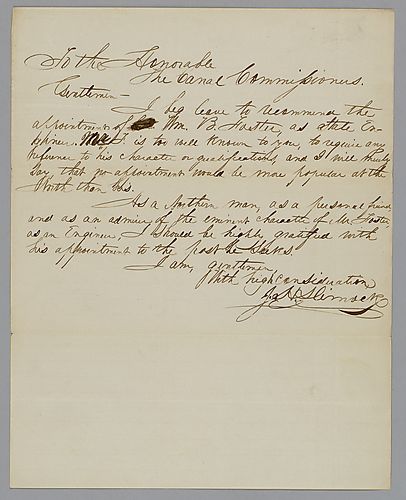 To the Honorable
The Canal Commissioners.
Gentlemen—
I beg leave to recommend the
appointment of Wm. B. Foster, as state En-
gineer. Mr F. is too well known to you, to require any
reference to his character or qualifications, and I will merely
say, that no appointment would be more popular at the
North than his.
As a Northern man, as a personal friend
and as an admirer of the eminent character of Mr Foster,
as an Engineer, I should be highly gratified with
his appointment to the post he seeks.
I am, gentlemen,
With high consideration